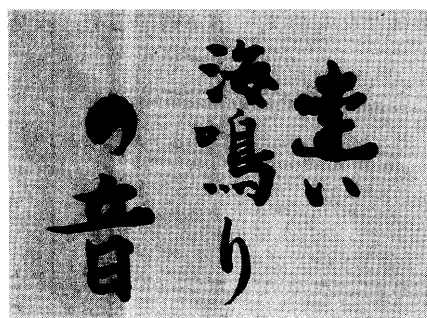 遠い
海鳴り
の音